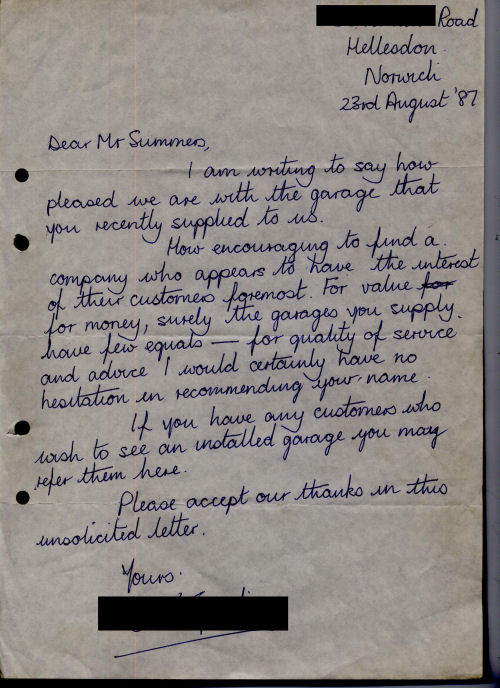 Road
Hellesdon.
Norwich
23rd August '87
Dear Mr Summers,
I am writing to say how
pleased we are with the garage that
you recently supplied to us.
How encouraging to find a
company who appears to have the interest
of their customers foremost. For value for
for money, surely the garages you supply
have few equals — for quality of service
and advice I would certainly have no
hesitation in recommending your name.
If you have any customers who
wish to see an installed garage you may
refer them here.
Please accept our thanks in this
unsolicited letter.
Yours.